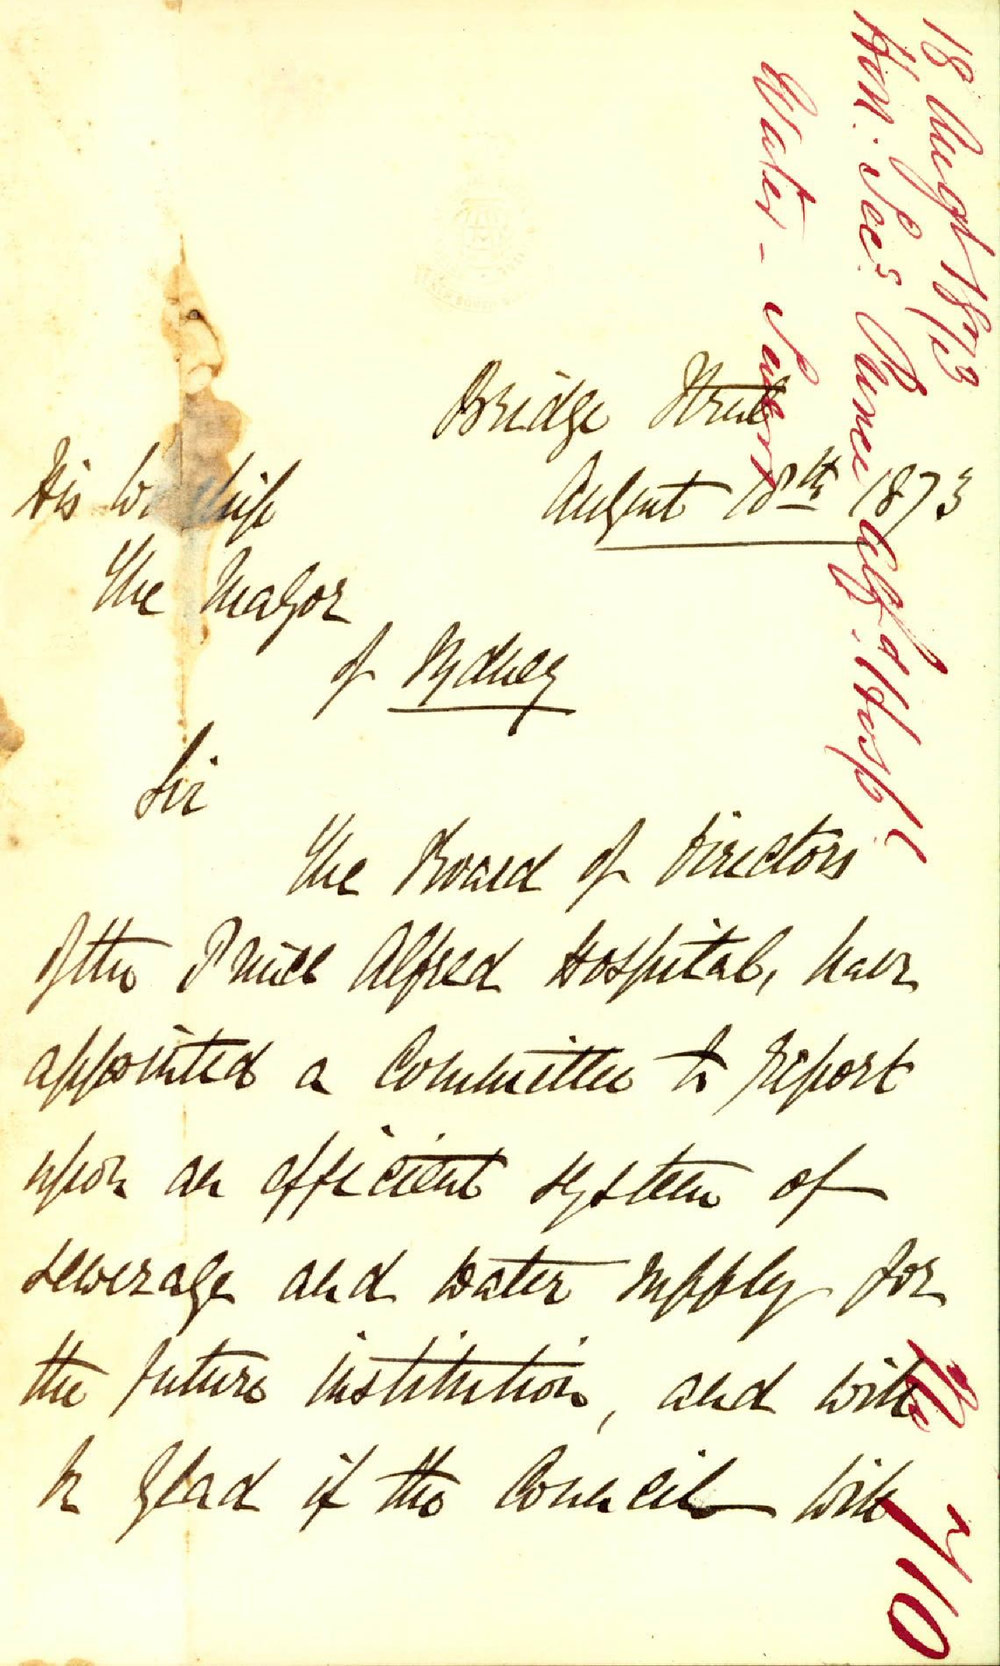 18 Augt 1873
Hon: Secs. Prince Alfd. Hospl
Water - Supply
Bridge Street
August 18th 1873
His Worship
The Mayor
of Sydney
Sir
The Board of Directors
of the Prince Alfred Hospital, have
appointed a Committee to report
upon an efficient system of
sewerage and water supply for
the future institution, and will
be glad if the Council will
No 710